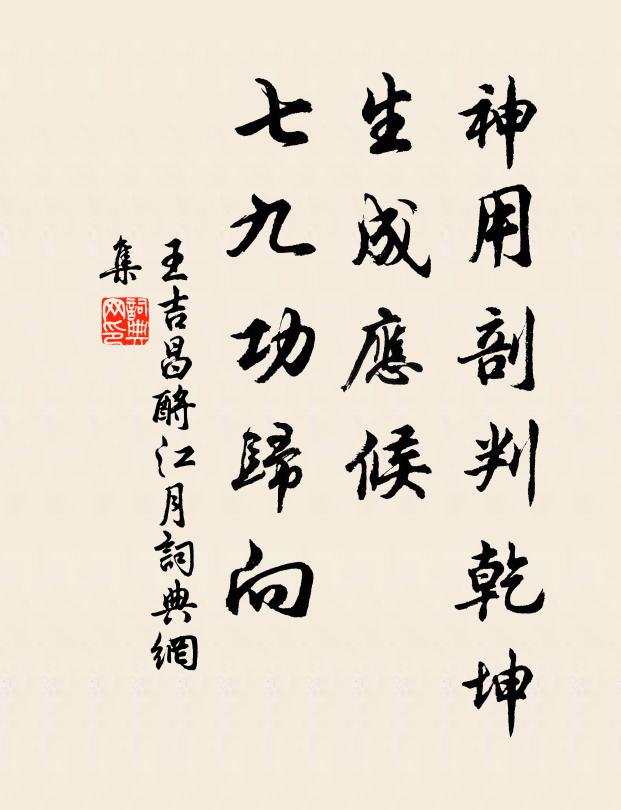 神用剖判乾坤
生成應候
七九功歸向
王吉昌酹江月詞典網
集
詞典
网印